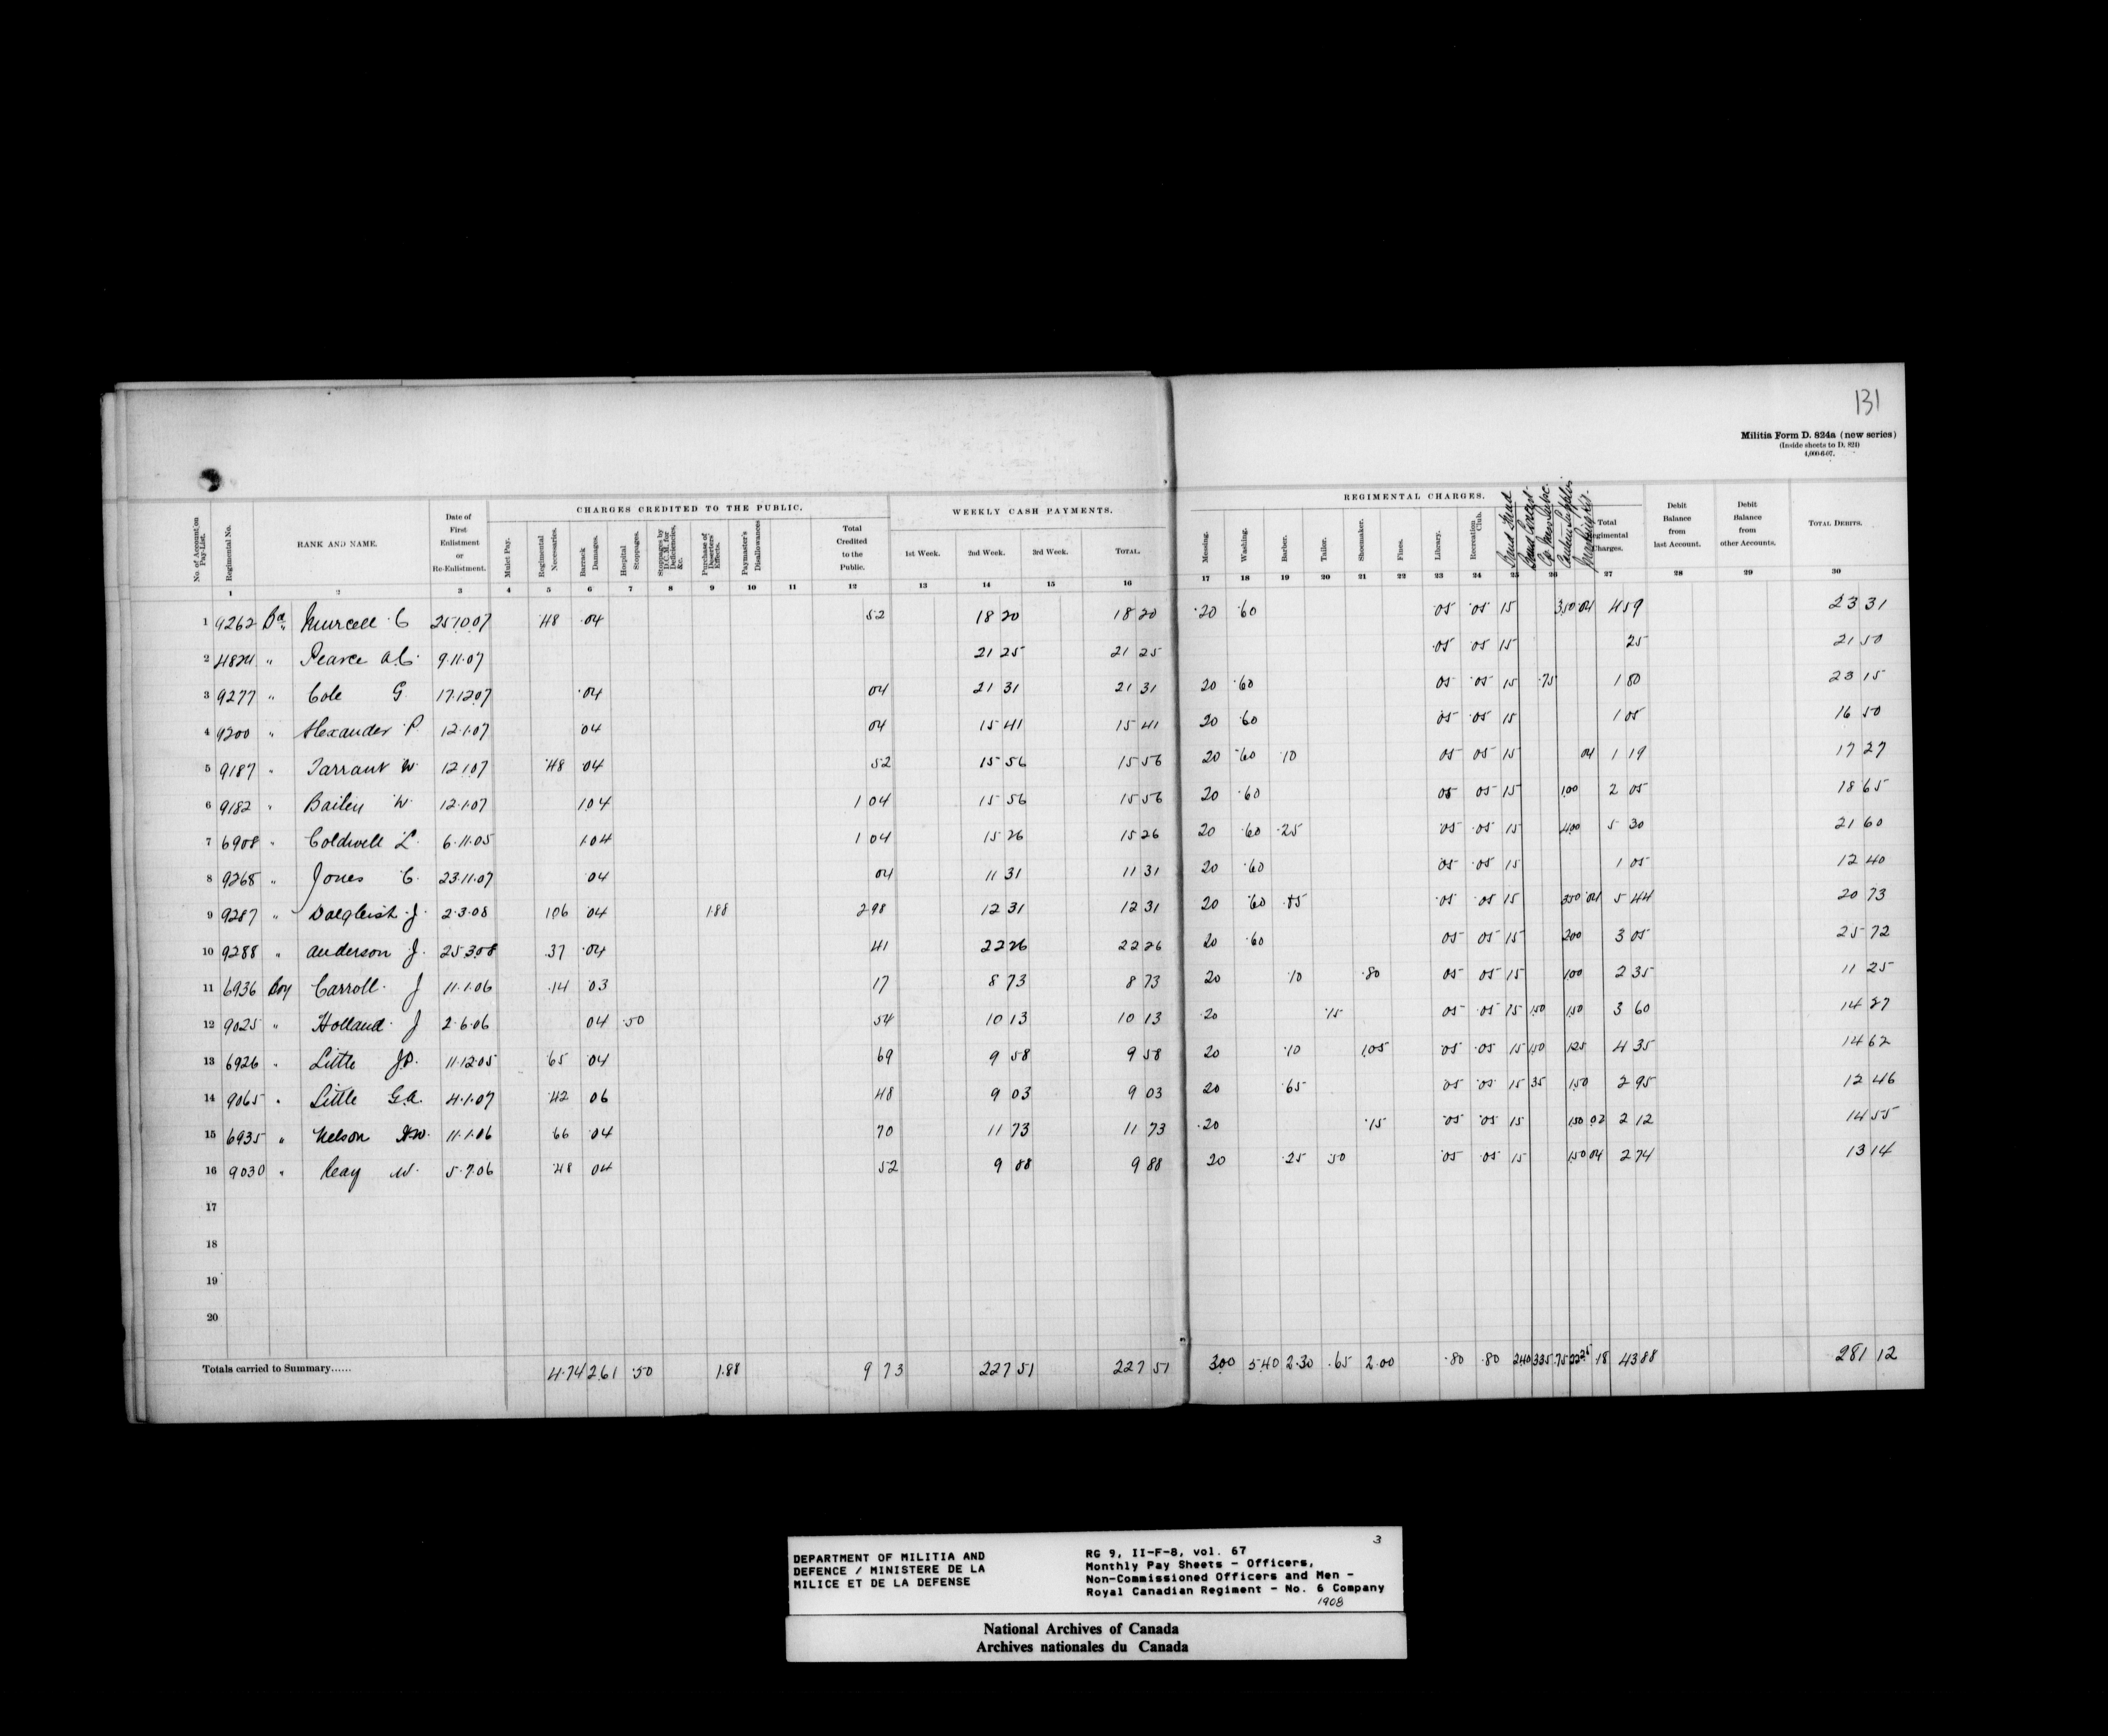 131
Militia Form D. 824a (new series)
(Inside sheets to D. 824)
4,000-6-07.
No. of Account on Pay-List.
Regimental No.
RANK AND NAME.
Date of First Enlistment or Re-Enlistment.
CHARGES CREDITED TO THE PUBLIC.
Mulct Pay.
Regimental Necessaries.
Barrack Damages.
Hospital Stoppages.
Stoppages by D.C.M. for Deficiencies, &c.
Purchase of Deserters' Effects.
Paymaster's Disallowances
Total Credited to the Public.
WEEKLY CASH PAYMENTS.
1st Week. 2nd Week. 3rd Week. TOTAL.
REGIMENTAL CHARGES.
Messing.
Washing.
Barber.
Tailor.
Shoemaker.
Fines.
Library.
Recreation Club.
Total Regimental Charges.
Debit Balance from last Account.
Debit Balance from other Accounts.
TOTAL DEBITS.
1 2 3 4 5 6 7 8 9 10 11 12 13 14 15 16 17 18 19 20 21 22 23 24 25 26 27 28 29 30
1 9262 Murcell C 25.10.07 .48 .04 52 18 20 18 20 .20 .60 .05 .05 15 3.50 .04 4 59 23 31
2 4824 " Pearce A.C. 9.11.07 21 25 21 25 .05 .05 15 25 21 50
3 9277 " Cole G 17.12.07 .04 04 21 31 21 31 20 .60 05 .05 15 .75 1 80 23 15
4 9200 " Alexander P 12.1.07 04 04 15 41 15 41 20 .60 .05 .05 15 1 05 16 50
5 9187 " Tarrant W 12.1.07 .48 04 52 15 56 15 56 20 .60 .10 05 05 15 04 1 19 17 27
6 9182 " Bailey W. 12.1.07 1.04 1 04 15 56 15 56 20 .60 05 05 15 1.00 2 05 18 65
7 6908 " Coldwell L. 6.11.05 1.04 1 04 15 26 15 26 20 .60 .25 .05 .05 15 4.00 5 30 21 60
8 9268 " Jones C. 23.11.07 .04 04 11 31 11 31 20 .60 .05 .05 15 1 05 12 40
9 9287 " Dalgleish J. 2.3.08 1.06 .04 1.88 2 98 12 31 12 31 20 .60 .85 .05 .05 15 3.50 .04 5 44 20 73
10 9288 " Anderson J. 25.3.08 .37 .04 41 22 26 22 26 20 .60 05 05 15 2.00 3 05 25 72
11 6936 Boy Carroll J 11.1.06 .14 03 17 8 73 8 73 20 .10 .80 05 05 15 1.00 2 35 11 25
12 9025 " Holland J 2.6.06 04 .50 54 10 13 10 13 .20 .15 05 .05 15 1.50 1.50 3 60 14 27
13 6926 " Little J.D. 11.12.05 .65 .04 69 9 58 9 58 20 .10 1.05 .05 .05 15 1.50 1.25 4 35 14 62
14 9065 " Little G.A. 4.1.07 .42 06 48 9 03 9 03 20 .65 .05 .05 15 35 1.50 2 95 12 46
15 6935 " Nelson 11.1.06 .66 .04 70 11 73 11 73 .20 .15 .05 .05 15 1.50 .02 2 12 14 55
16 9030 " Reay W. 5.7.06 .48 04 52 9 88 9 88 20 .25 .50 .05 .05 15 1.50 04 2 74 13 14
17
18
19
20
Totals carried to Summary...... 4.74 2.61 .50 1.88 9 73 227 51 227 51 3.00 5.40 2.30 .65 2.00 .80 .80 2.40 3.35 .75 22.25 .18 43 88 281 12
DEPARTMENT OF MILITIA AND
DEFENCE / MINISTERE DE LA
MILICE ET DE LA DEFENSE
3
RG 9, II-F-8, vol. 67
Monthly Pay Sheets - Officers,
Non-Commissioned Officers and Men -
Royal Canadian Regiment - No. 6 Company
1908
National Archives of Canada
Archives nationales du Canada